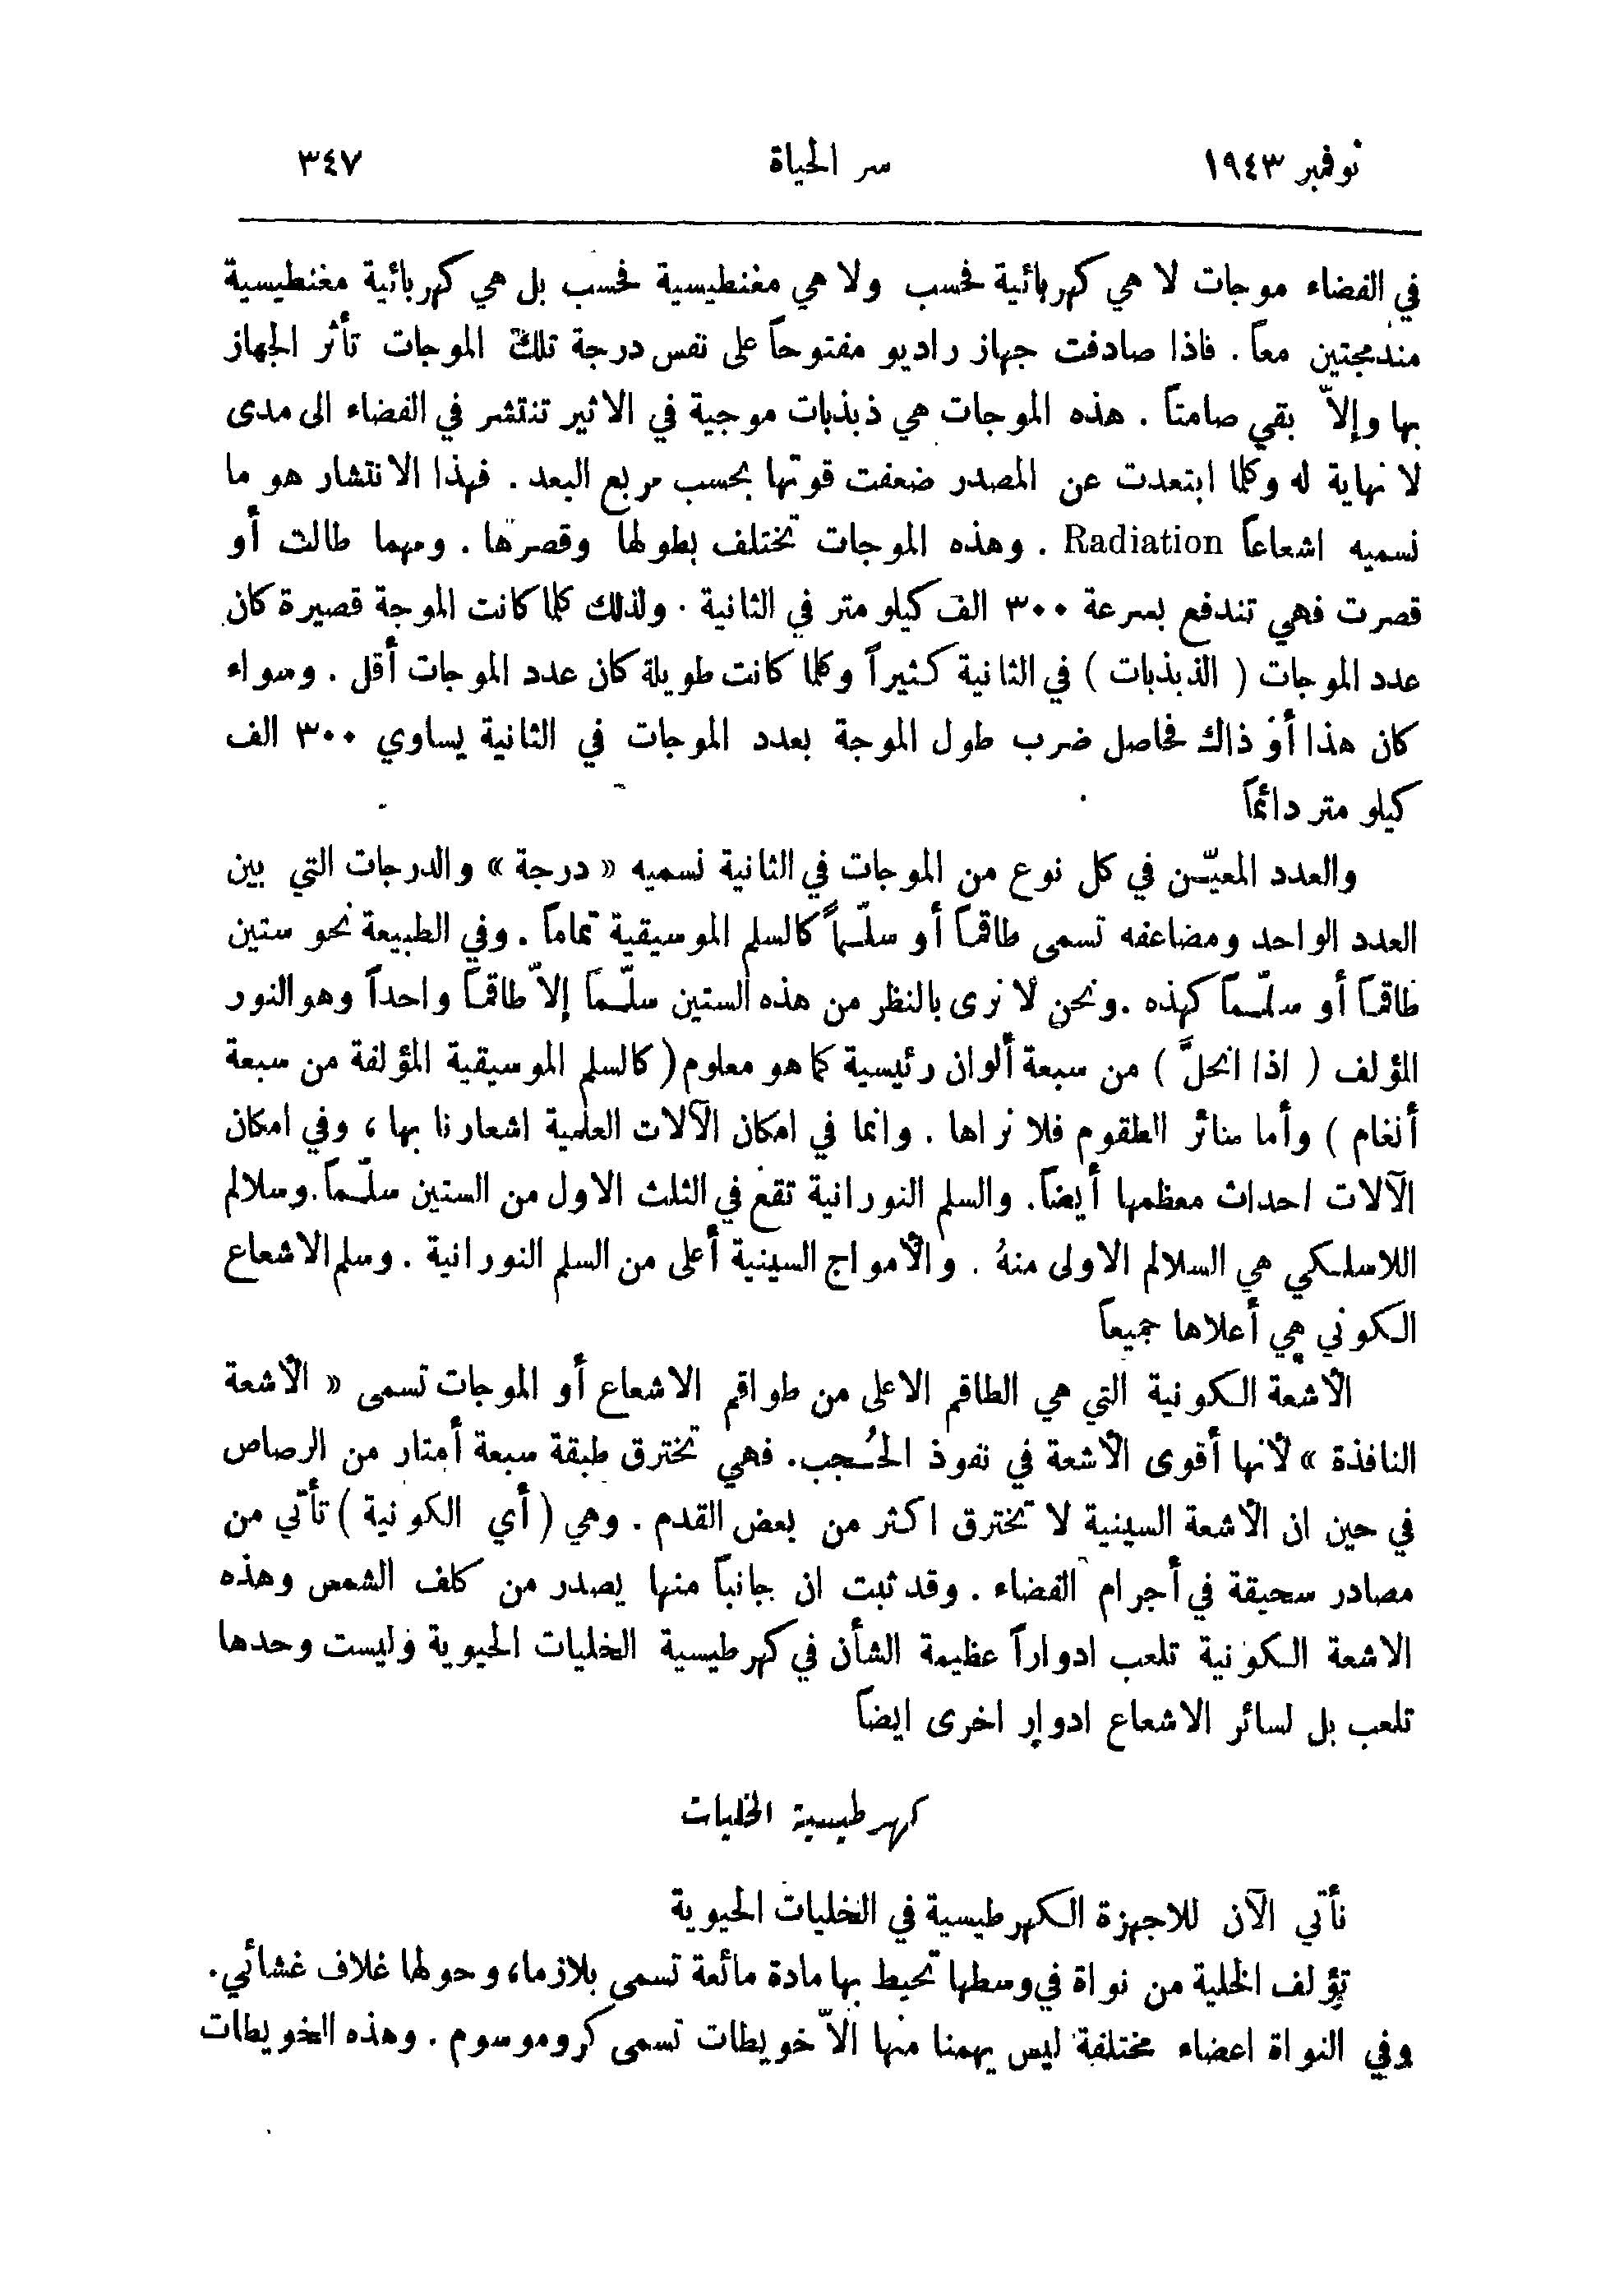 نوفمبر ١٩٤٣ سر الحياة ٣٤٧
في الفضاء موجات لا هي كهربائية فحسب ولا هي مغنطيسية فحسب بل هي كهربائية مغنطيسية
مندمجتين معاً . فاذا صادفت جهاز راديو مفتوحاً على نفس درجة تلك الموجات تأثر الجهاز
بها وإلاّ بقي صامتاً . هذه الموجات هي ذبذبات موجية في الاثير تنتشر في الفضاء الى مدى
لا نهاية له وكلما ابتعدت عن المصدر ضعفت قوتها بحسب مربع البعد . فهذا الانتشار هو ما
نسميه اشعاعاً Radiation . وهذه الموجات تختلف بطولها وقصرها . ومهما طالت أو
قصرت فهي تندفع بسرعة ٣٠٠ الف كيلو متر في الثانية . ولذلك كلما كانت الموجة قصيرة كان
عدد الموجات ( الذبذبات ) في الثانية كثيراً وكلما كانت طويلة كان عدد الموجات أقل . وسواء
كان هذا أو ذاك فحاصل ضرب طول الموجة بعدد الموجات في الثانية يساوي ٣٠٠ الف
كيلو متر دائماً
والعدد المعيّن في كل نوع من الموجات في الثانية نسميه « درجة » والدرجات التي بين
العدد الواحد ومضاعفه تسمى طاقماً أو سلّماً كالسلم الموسيقية تماماً . وفي الطبيعة نحو ستين
طاقماً أو سلّماً كهذه . ونحن لا نرى بالنظر من هذه الستين سلّماً إلاّ طاقماً واحداً وهو النور
المؤلف ( اذا انحلَّ ) من سبعة ألوان رئيسية كما هو معلوم ( كالسلم الموسيقية المؤلفة من سبعة
أنغام ) وأما سائر الطقوم فلا نراها . وانما في امكان الآلات العلمية اشعارنا بها ، وفي امكان
الآلات احداث معظمها أيضاً . والسلم النورانية تقع في الثلث الاول من الستين سلّماً . وسلالم
اللاسلكي هي السلالم الاولى منهُ . والأمواج السينية أعلى من السلم النورانية . وسلم الاشعاع
الكوني هي أعلاها جميعاً
الأشعة الكونية التي هي الطاقم الاعلى من طواقم الاشعاع أو الموجات تسمى « الأشعة
النافذة » لأنها أقوى الأشعة في نفوذ الحُجب . فهي تخترق طبقة سبعة أمتار من الرصاص
في حين ان الأشعة السينية لا تخترق اكثر من بعض القدم . وهي ( أي الكونية ) تأتي من
مصادر سحيقة في أجرام الفضاء . وقد ثبت ان جانباً منها يصدر من كلف الشمس وهذه
الاشعة الكونية تلعب ادواراً عظيمة الشأن في كهرطيسية الخليات الحيوية وليست وحدها
تلعب بل لسائر الاشعاع ادوار اخرى ايضاً
كهرطيسية الخليات
نأتي الآن للاجهزة الكهرطيسية في الخليات الحيوية
تؤلف الخلية من نواة في وسطها تحيط بها مادة مائعة تسمى بلازما، وحولها غلاف غشائي .
وفي النواة اعضاء مختلفة ليس يهمنا منها الاّ خويطات تسمى كروموسوم . وهذه الخويطات